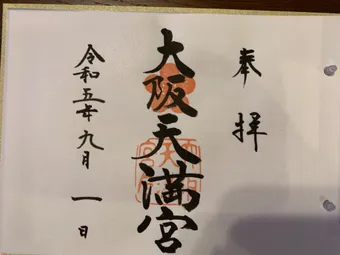 奉拝
大阪天満宮
令和五年九月一日